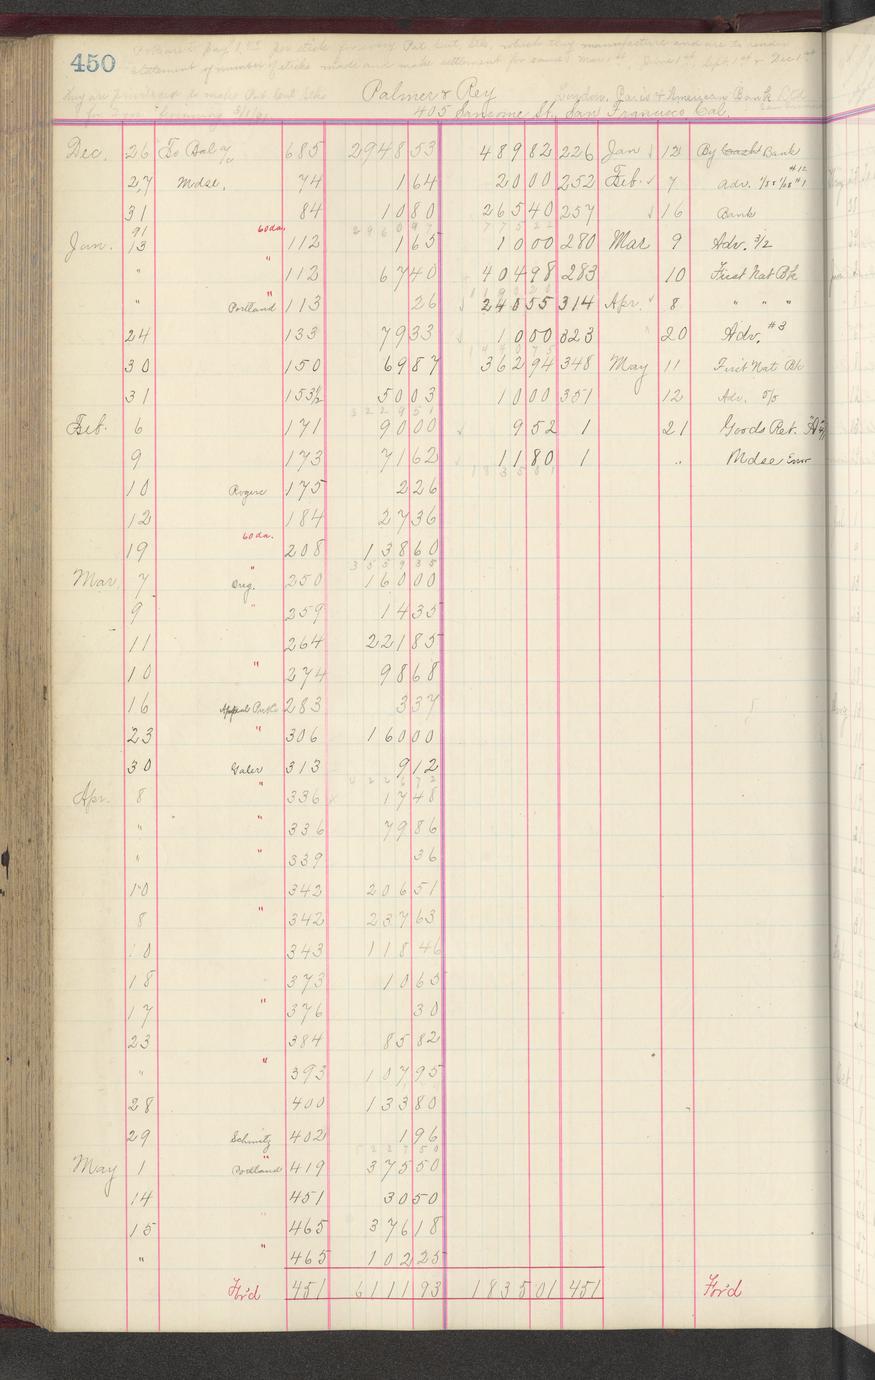 450
statement of number of sticks made and make settlement for same Mar 1st, June 1st, Sept 1st & Dec 1st
Palmer & Rey London, Paris & American Bank Ltd
405 Sansome St., San Francisco Cal.
Dec. 26 To Bal a/c 685 2948 53 489 82 226 Jan 12 By Bank
27 Mdse. 74 1 64 20 00 252 Feb. 7 adv.
31 84 10 80 265 40 257 16 Bank
60 da. 2960 97 775 22
Jan. 91 13 112 1 65 10 00 280 Mar 9 Adv. 3/2
" " 112 67 40 404 98 283 10 First Nat Bk
" " Portland 113 26 240 55 314 Apr. 8 " " "
24 133 79 33 10 00 323 " 20 Adv. #3
30 150 69 87 362 94 348 May 11 First Nat Bk
31 153½ 50 03 10 00 351 12 Adv. 5/5
3229 51
Feb. 6 171 90 00 9 52 1 21 Goods Ret.
9 173 71 62 11 80 1 " Mdse Error
1835 01
10 Rogers 175 2 26
12 184 27 36
19 60 da. 208 138 60
3559 35
Mar. 7 " Orig. 250 160 00
9 " 259 14 35
11 264 221 85
10 " 274 98 68
16 283 3 37
23 " 306 160 00
30 Galer 313 9 12
Apr. 8 " 336 17 48
" " 336 79 86
" " 339 36
10 342 206 51
8 " 342 237 63
10 343 118 46
18 373 10 65
17 " 376 30
23 384 85 82
" " 393 107 95
28 400 133 80
29 Schmitz 402 1 96
May 1 " Portland 419 375 50
14 451 30 50
15 " 465 376 18
" " 465 102 25
For'd 451 6111 93 1835 01 451 For'd